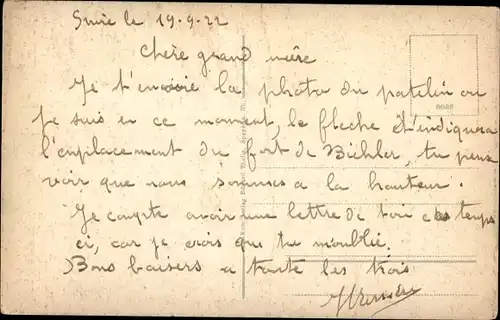 le 19-9-22
Chère grand mère
Je t'envoie la photo du patelin ou
je suis en ce moment, la fleche t'indiquera
l'emplacement du fort de Bichler, tu peux
voir que nous sommes a la hauteur.
Je compte avoir une lettre de toi ces temps
ci, car je crois que tu m'oublie.
Bons baisers a toute les trois